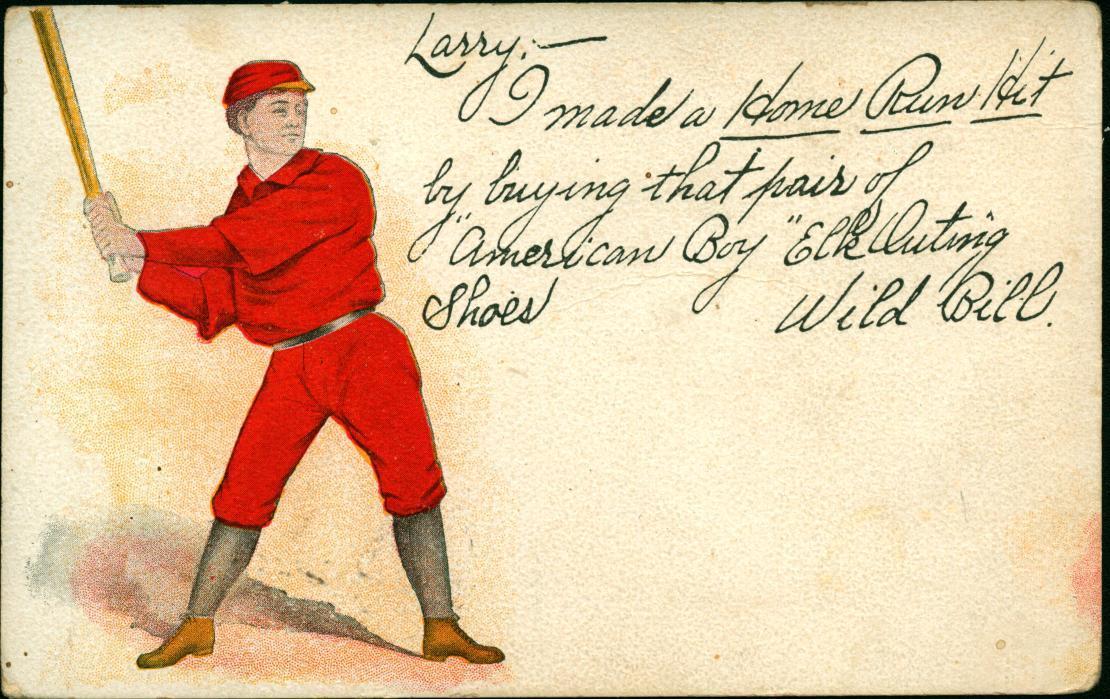 Larry:—
I made a Home Run Hit
by buying that pair of
"American Boy" Elk Outing
Shoes
Wild Bill.